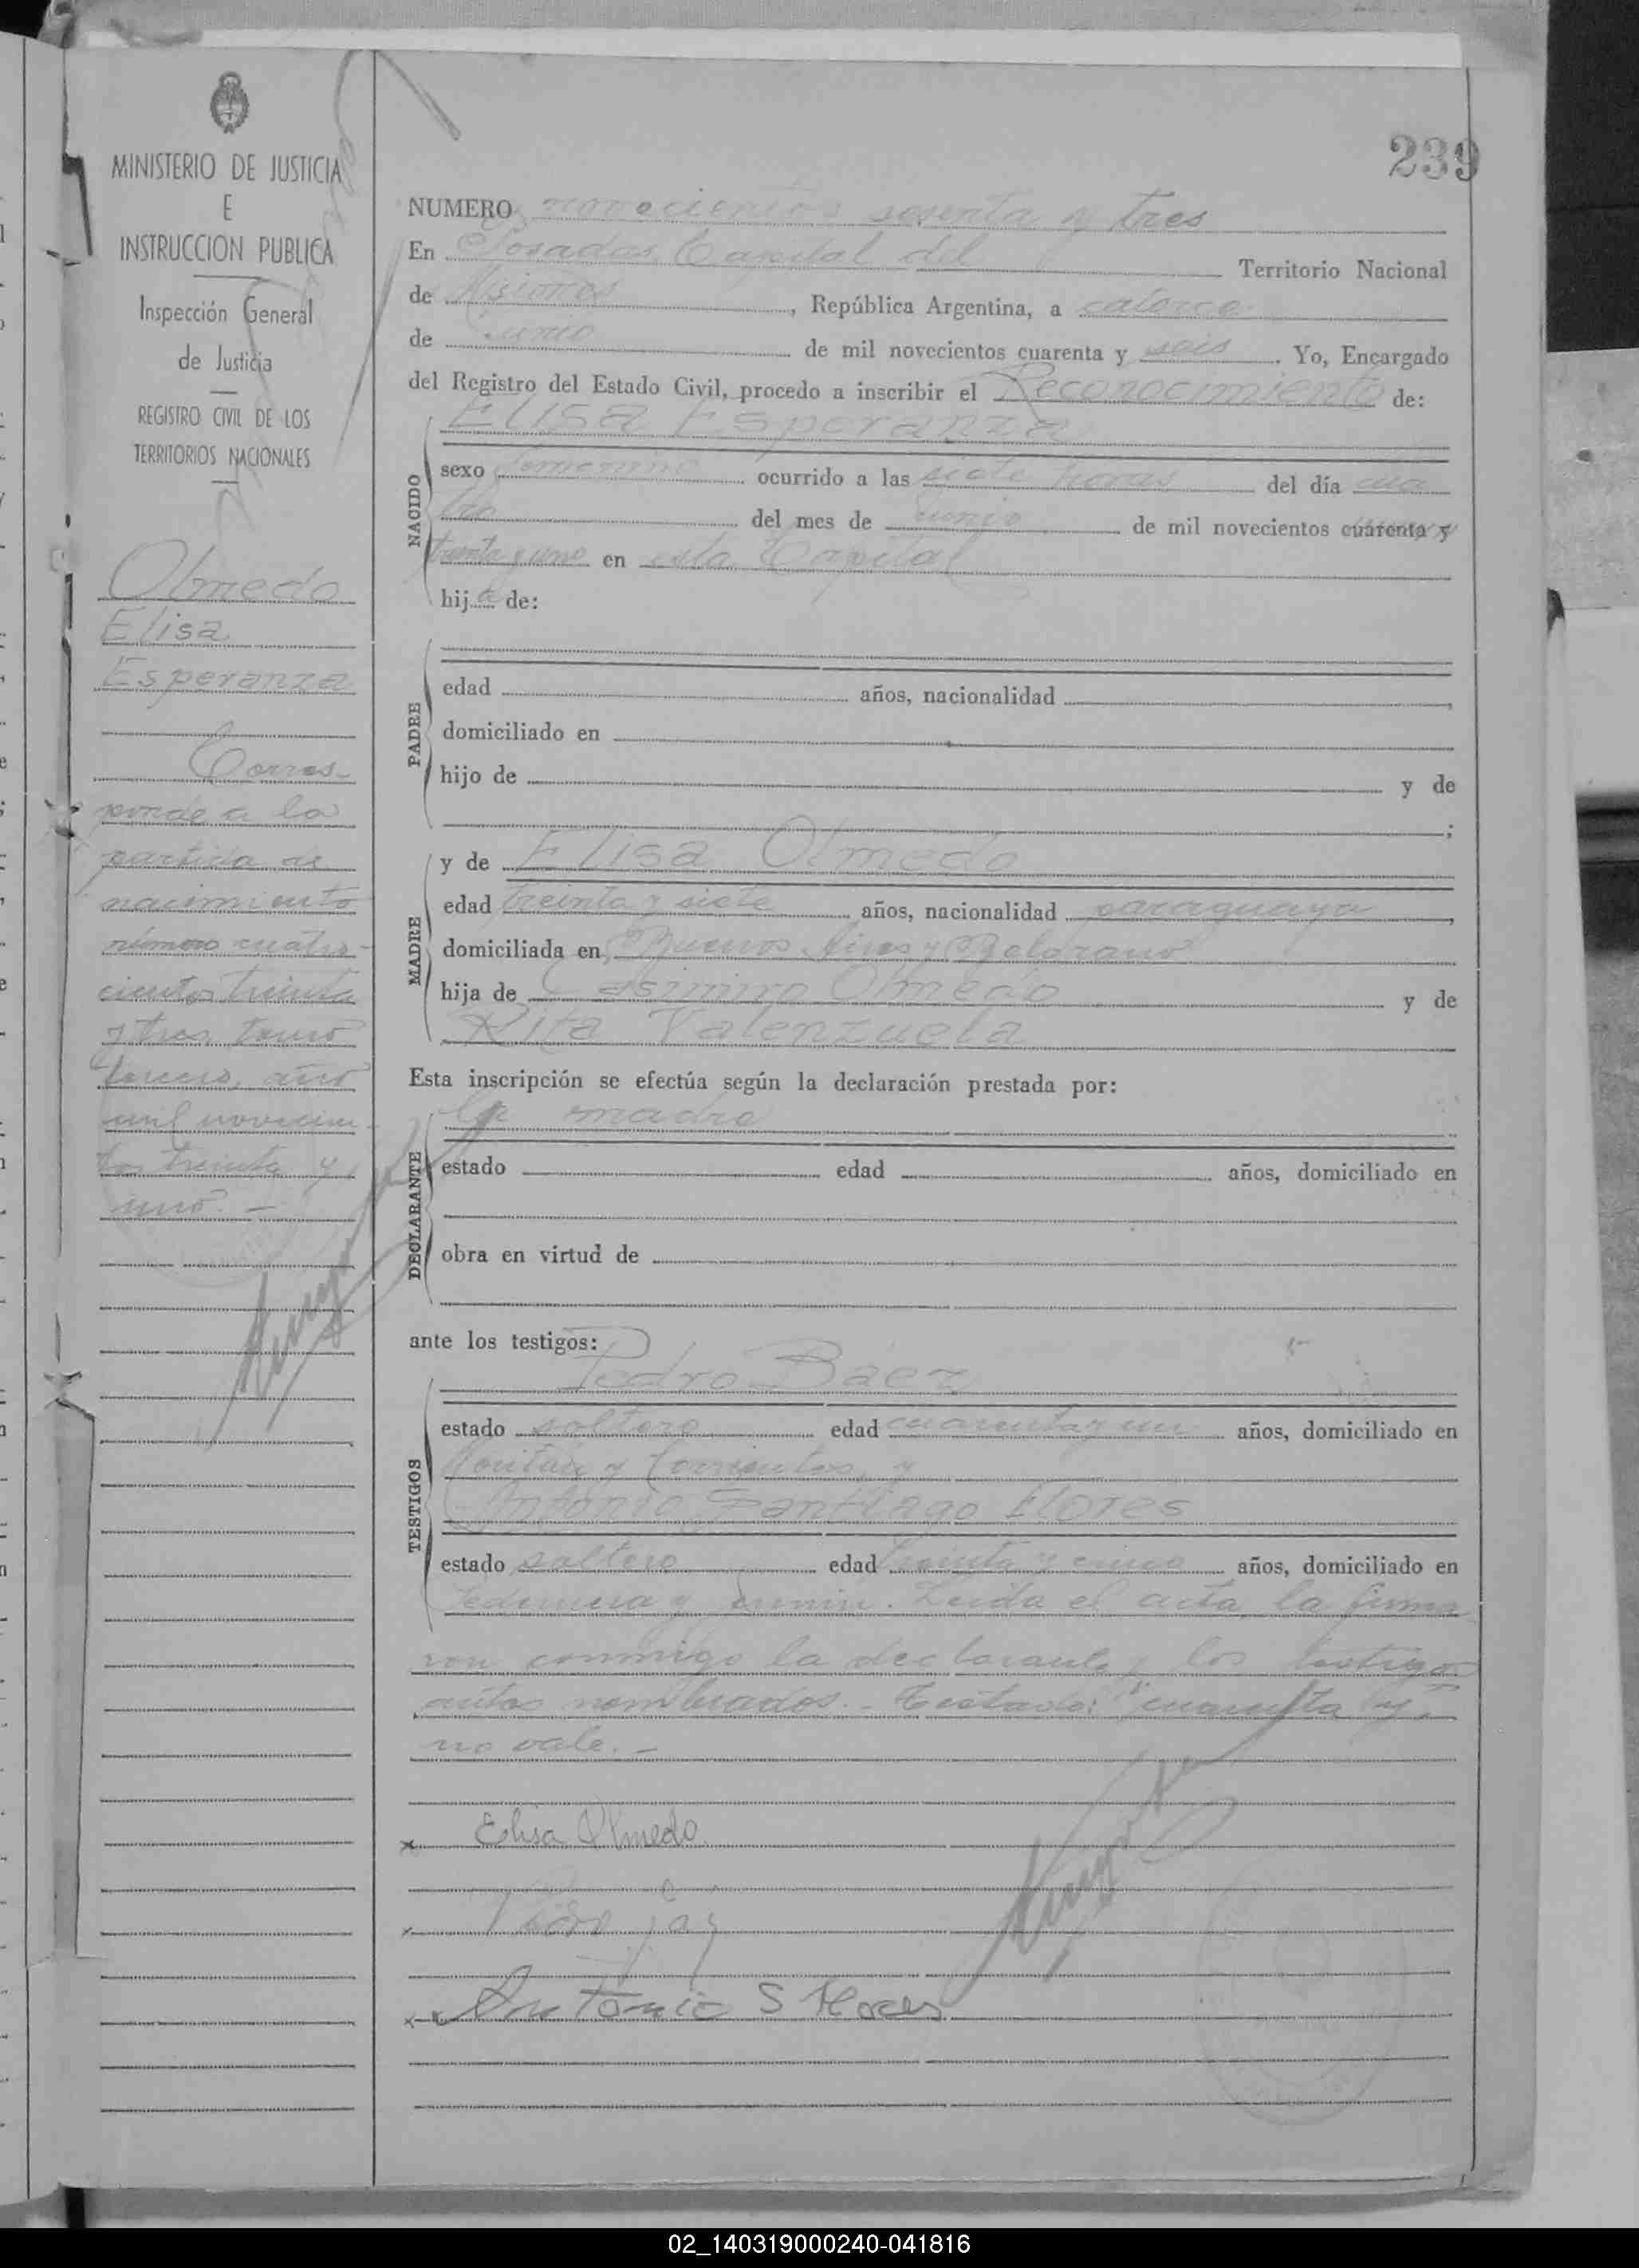 MINISTERIO DE JUSTICIA
E
INSTRUCCION PUBLICA
Inspección General
de Justicia
REGISTRO CIVIL DE LOS
TERRITORIOS NACIONALES
Olmedo
Elisa
Esperanza
Corres-
ponde a la
partida de
nacimiento
número cuatro-
cientos treinta
y tres tomo
tercero, año
mil novecien-
tos treinta y
uno. -
239
NUMERO novecientos sesenta y tres
En Posadas Capital del Territorio Nacional
de Misiones, República Argentina, a catorce
de Junio de mil novecientos cuarenta y seis. Yo, Encargado
del Registro del Estado Civil, procedo a inscribir el Reconocimiento de:
Elisa Esperanza
NACIDO
sexo femenino ocurrido a las siete horas del día cua
tro del mes de junio de mil novecientos cuarenta y
treinta y uno en esta Capital
hija de:
PADRE
edad años, nacionalidad ,
domiciliado en
hijo de y de
;
MADRE
y de Elisa Olmedo
edad treinta y siete años, nacionalidad paraguaya,
domiciliada en Buenos Aires y Belgrano
hija de Casimiro Olmedo y de
Rita Valenzuela
Esta inscripción se efectúa según la declaración prestada por:
la madre
DECLARANTE
estado edad años, domiciliado en
obra en virtud de
ante los testigos:
Pedro Baez
TESTIGOS
estado soltero edad cuarenta y un años, domiciliado en
y Corrientes, y
Antonio Santiago Flores
estado soltero edad treinta y cinco años, domiciliado en
y Junin. Leida el acta, la firma
ron conmigo la declarante y los testigos
antes nombrados. - Testado: "cuarenta y".
no vale. -
x Elisa Olmedo
x
x Antonio S Flores
02_140319000240-041816